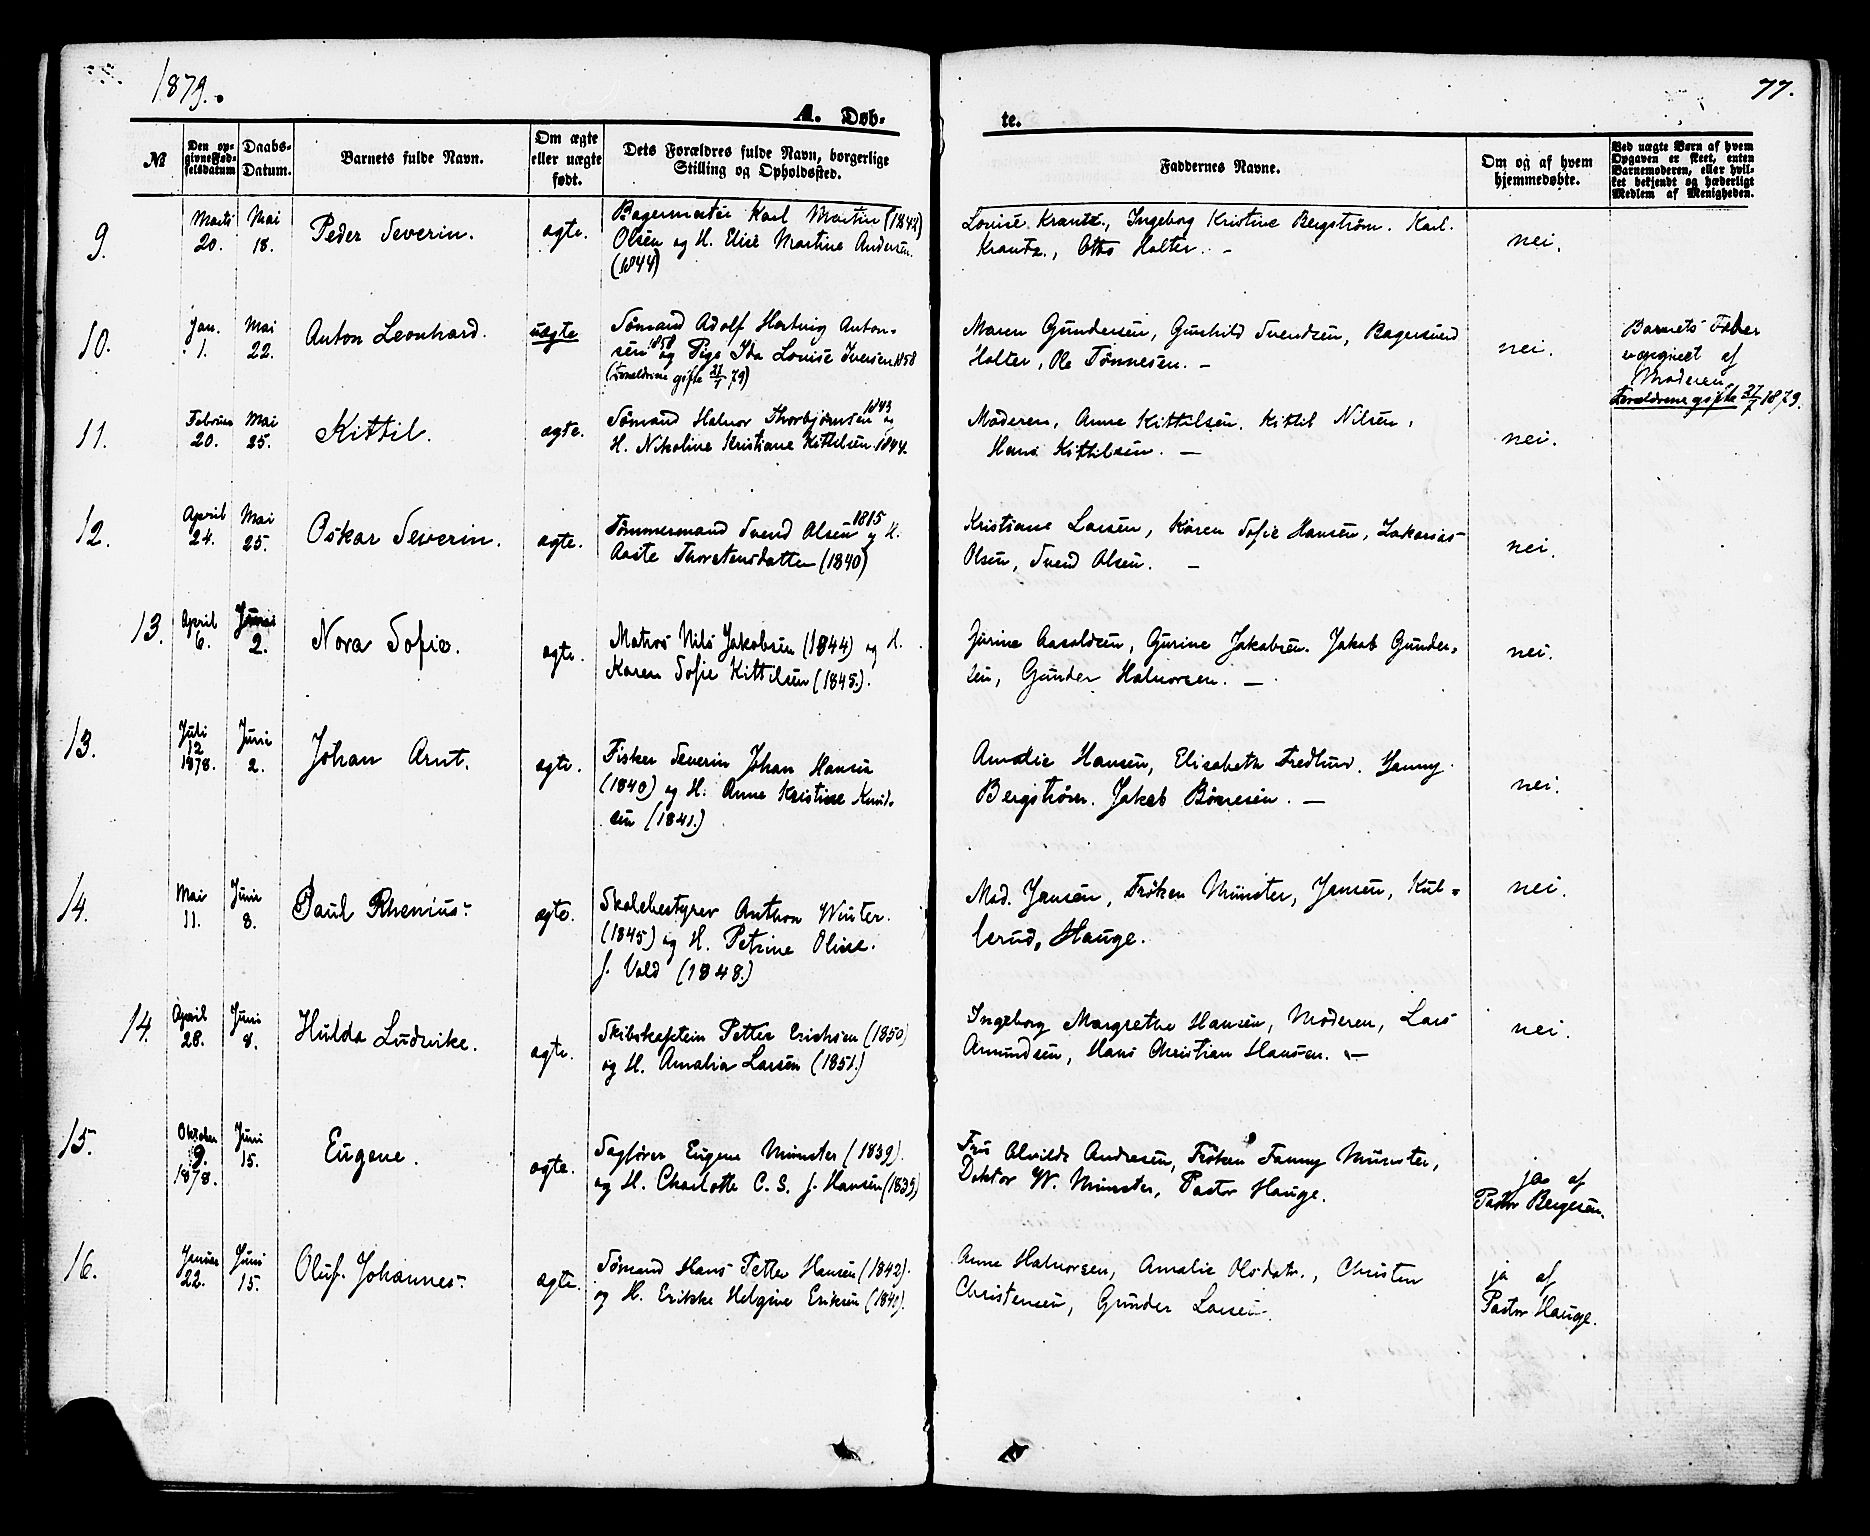 1879.
77.
A. Døb-
te.
№
Den op-
givne Fød-
selsdatum
Daabs-
Datum.
Barnets fulde Navn.
Om ægte
eller uægte
født.
Dets Forældres fulde Navn, borgerlige
Stilling og Opholdssted.
Faddernes Navne.
Om og af hvem
hjemmedøbte.
Ved uægte Børn af hvem
Opgaven er skeet, enten
Barnemoderen, eller hvil-
ket bekjendt og hæderligt
Medlem af Menigheden.
9.
Marts
20.
Mai
18.
Peder Severin.
ægte.
Bagermester Karl Martin (1842)
Olsen og H. Elise Martine Andersen.
(1844)
Louise Krantz., Ingeborg Kristine Bergstrøm. Karl.
Krantz., Otto Holter. –
nei.
10.
Jan.
1.
Mai
22.
Anton Leonhard.
uægte
Sømand Adolf Hartvig Anton-
sen 1858 og Pige Ida Lovise Iversen 1858
(Forældrene gifte 27/7 79)
Maren Gundersen, Gunhild Svendsen, Bagersvend
Holter, Ole Tønnesen. –
nei.
Barnets Fader
er opgivet af
Moderen.
Forældrene gifte 27/7 1879.
11.
Februar
20.
Mai
25.
Kittil.
ægte.
Sømand Halvor Thorbjørnsen 1843 og
H. Nikoline Kristiane Kittilsen 1844.
Moderen, Anne Kittilsen. Kittil Nilsen,
Hans Kittilsen. –
nei.
12.
April
24.
Mai
25.
Oskar Severin.
ægte.
Tømmermand Svend Olsen 1815 og H.
Aaste Thorstensdatter (1840)
Kristiane Larsen, Karen Sofie Hansen, Zakarias
Olsen, Svend Olsen. –
nei.
13.
April
6.
Juni
2.
Nora Sofie.
ægte.
Matros Nils Jakobsen (1844) og H.
Karen Sofie Kittilsen (1845.).
Jørine Aasoldsen, Gurine Jakobsen. Jakob Gunder-
sen, Gunder Halvorsen. –
nei.
13.
Juli
12
1878.
Juni
2.
Johan Arnt.
ægte.
Fisker Severin Johan Hansen
(1840) og H. Anne Kristine Knud-
sen (1841.)
Amalie Hansen, Elisabeth Fredlund. Jenny
Bergstrøm. Jakob Børresen. –
nei.
14.
Mai
11.
Juni
8.
Paul Rhenius.
ægte.
Skolebestyrer Anthon Winter.
(1845) og H. Petrine Oline.
f. Vold (1848.)
Mad. Jensen, Frøken Münster, Jensen, Kul-
lerud, Hauge.
nei.
14.
April
28.
Juni
8.
Hulda Ludvike.
ægte.
Skibskaptein Petter Erichsen (1850)
og H. Amalia Larsen (1851.)
Ingeborg Margrethe Hansen, Moderen, Lars
Amundsen, Hans Christian Hansen. –
nei.
15.
Oktober
9.
1878.
Juni
15.
Eugene.
ægte.
Sagfører Eugene Münster (1839).
og H. Charlotte C. S. f. Hansen (1839)
Fru Alvilde Andresen, Frøken Fanny Münster,
Doktor W. Münster, Pastor Hauge.
ja af
Pastor Bergesen.
16.
Januar
22.
Juni
15.
Oluf. Johannes.
ægte.
Sømand Hans Petter Hansen (1842).
og H. Erikke Helgine Eriksen (1840).
Anne Halvorsen, Amalie Olsdatr., Christen
Christensen, Gunder Larsen.
ja af
Pastor Hauge.